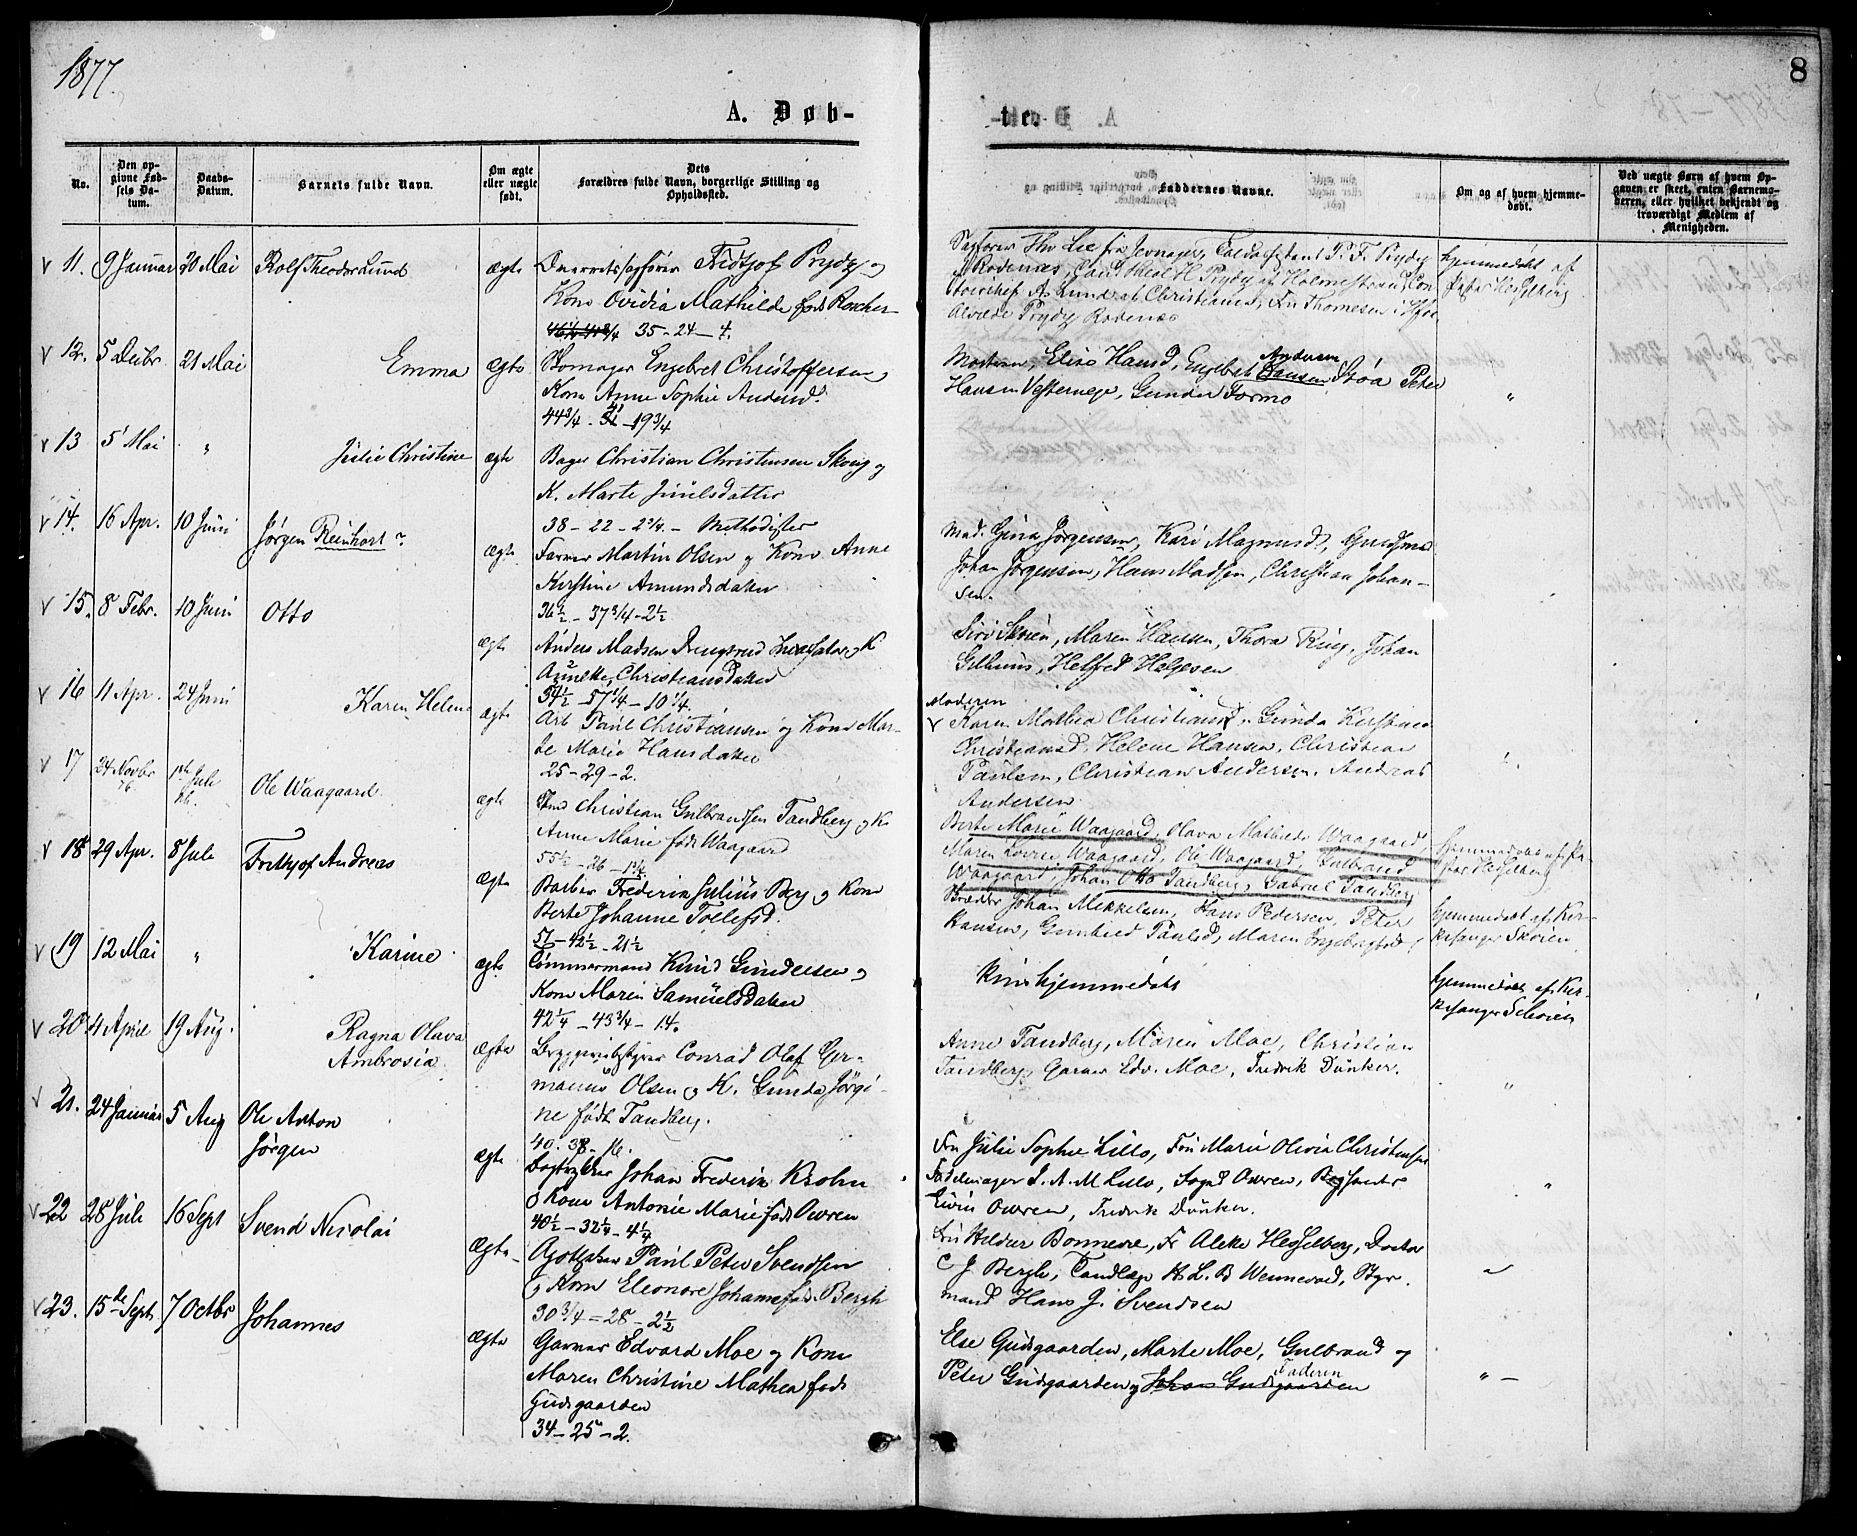 1877.
8
A. Døb-
te.
No.
Den op-
givne Fød-
sels Da-
tum.
Daabs-
Datum.
Barnets fulde Navn.
Om ægte
eller uægte
født.
Dets
Forældres fulde Navn, borgerlige Stilling og
Opholdssted.
Faddernes Navne.
Om og af hvem hjemme-
døbt.
Ved uægte Børn af hvem Op-
gaven er skeet, enten Barnemo-
deren, eller hvilket bekjendt og
troværdigt Medlem af
Menigheden.
11. 9 Januar 20 Mai Rolf Theodor Lund ægte Fridtjof Prydz og
Kone Ovidia Mathilde født
35-24-4.
Sagfører Thv Lie fra Jevnager, P. F. Prydz
Rodenæs, H Prydz af Holmestrand,
A. Lund af Christiania, Thomesen
Prydz Rodenæs
hjemmedøbt af
Pastor Hesselberg
12. 5 Decbr. 21 Mai Emma ægte Skomager Engebret Christoffersen og
Kone Anne Sophie Andersd.
44 3/4 - 19 3/4
Moderen, Elise Hansd, Engebret Andersen Støa Peter
Hansen, Gunder Formo
"
13 5 Mai " Julie Christine ægte Bager Christian Christensen Skoug og
K. Marte Juulsdatter
38-22-2 1/4 - Methodister
14. 16 Apr. 10 Juni Jørgen Reinhart ? ægte Farver Martin Olsen og Kone Anne
Kirstine Amundsdatter
36 1/2 - 37 3/4 - 2 1/2
Mad. Gina Jørgensen, Kari Magnusd,
Johan Jørgensen, Hans Madsen, Christian Johan-
sen.
15. 8 Febr. 10 Juni Otto ægte Anders Madsen og K
Annette Christiansdatter
54 1/2 - 57 1/4 - 10 1/4.
Siri Skøien, Maren Hansen, Thora Ring, Johan
Gilhuus, Helfred Helgesen
16 11 Apr. 24 Juni Karen Helene ægte Arb Paul Christiansen og Kone Mar-
te Marie Hansdatter
25-29-2.
Moderen
Karen Mathea Christiansd, Gunda Kirstine
Christiansd. Helene Hansen, Christian
Paulsen, Christian Andersen, Andreas
Andersen
17 24 Novbr 76 1ste Juli Ole Waagaard. ægte Christian Gulbrandsen Tandberg og K
Anne Marie født Waagaard
55 1/2 - 26 - 1 3/4
Berte Marie Waagaard, Olava Mathilde Waagaard,
Maren Lovise Waagaard, Ole Waagaard, Gulbrand
Waagaard, Johan Otto Tandberg, Gabriel Tandberg
hjemmedøbt af Pa-
stor Hesselberg
18 29 Apr. 8 Juli Frithjof Andreas ægte Barber Frederik Julius Berg og Kone
Berte Johanne Tollefsd.
51-42 1/2 - 21 1/2
Johan Mikkelsen, Hans Pedersen, Peter
Hansen, Gunhild Paulsd, Maren
hjemmedøbt af Kir-
kesanger Skøien
19 12 Mai " Karine ægte Tømmermand Knud Gundersen og
Kone Maren Samuelsdatter
42 1/4 - 43 3/4 - 14.
Kun hjemmedøbt
hjemmedøbt af Kir-
kesanger Schøien
20 4 April 19 Aug. Ragna Olava
Ambrosia. ægte Bryggeribestyrer Conrad Olaf Ger-
manus Olsen og K. Gunda Jørgi-
ne født Tandberg.
40. 38 - 16.
Anne Tandberg, Maren Moe, Christian
Tandberg, Garver Edv. Moe, Fredrik Dünker.
"
21. 24 Januar 5 Aug Ole Anton
Jørgen ægte Bogtrykker Johan Frederik Krohn
og Kone Antonie Marie født Owren
40 1/2 - 32 1/4 - 4 1/4
Fru Julie Sophie Lillo, Fru Marie Olivia Christensen
Sadelmager J. A. M Lillo, Owren,
Owren, Fredrik Dünker.
"
22 28 Juli 16 Sept Svend Nicolai ægte Apotheker Paul Peter Svendsen
og Kone Eleonore Johanne født Bergh
30 3/4 = 28 - 2 1/2
Bonnevie, Fr Aleke Hesselberg, Doctor
C J Bergh, Tandlæge H. L. B Wennevold, Styr-
mand Hans J. Svendsen
"
23. 15de Sept. 7 Octbr Johannes ægte Garver Edvard Moe og Kone
Maren Christine Mathea født
Gudsgaarden
34-25-2.
Else Gudsgaarden, Marte Moe, Gulbrand og
Peter Gudsgaarden og Johan Gudsgaarden Faderen
" -